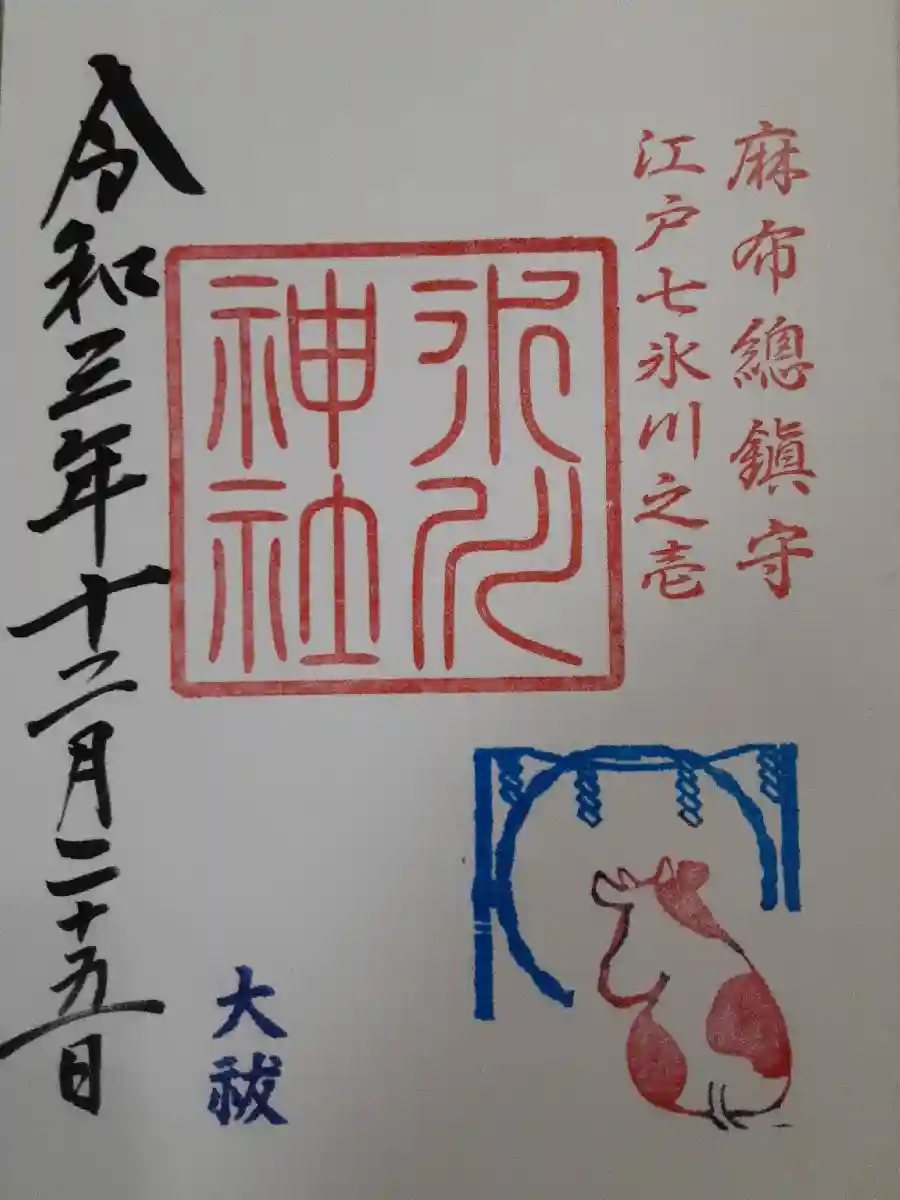 麻布總鎭守
江戸七氷川之壱
氷川
神社
令和三年十二月二十五日
大祓